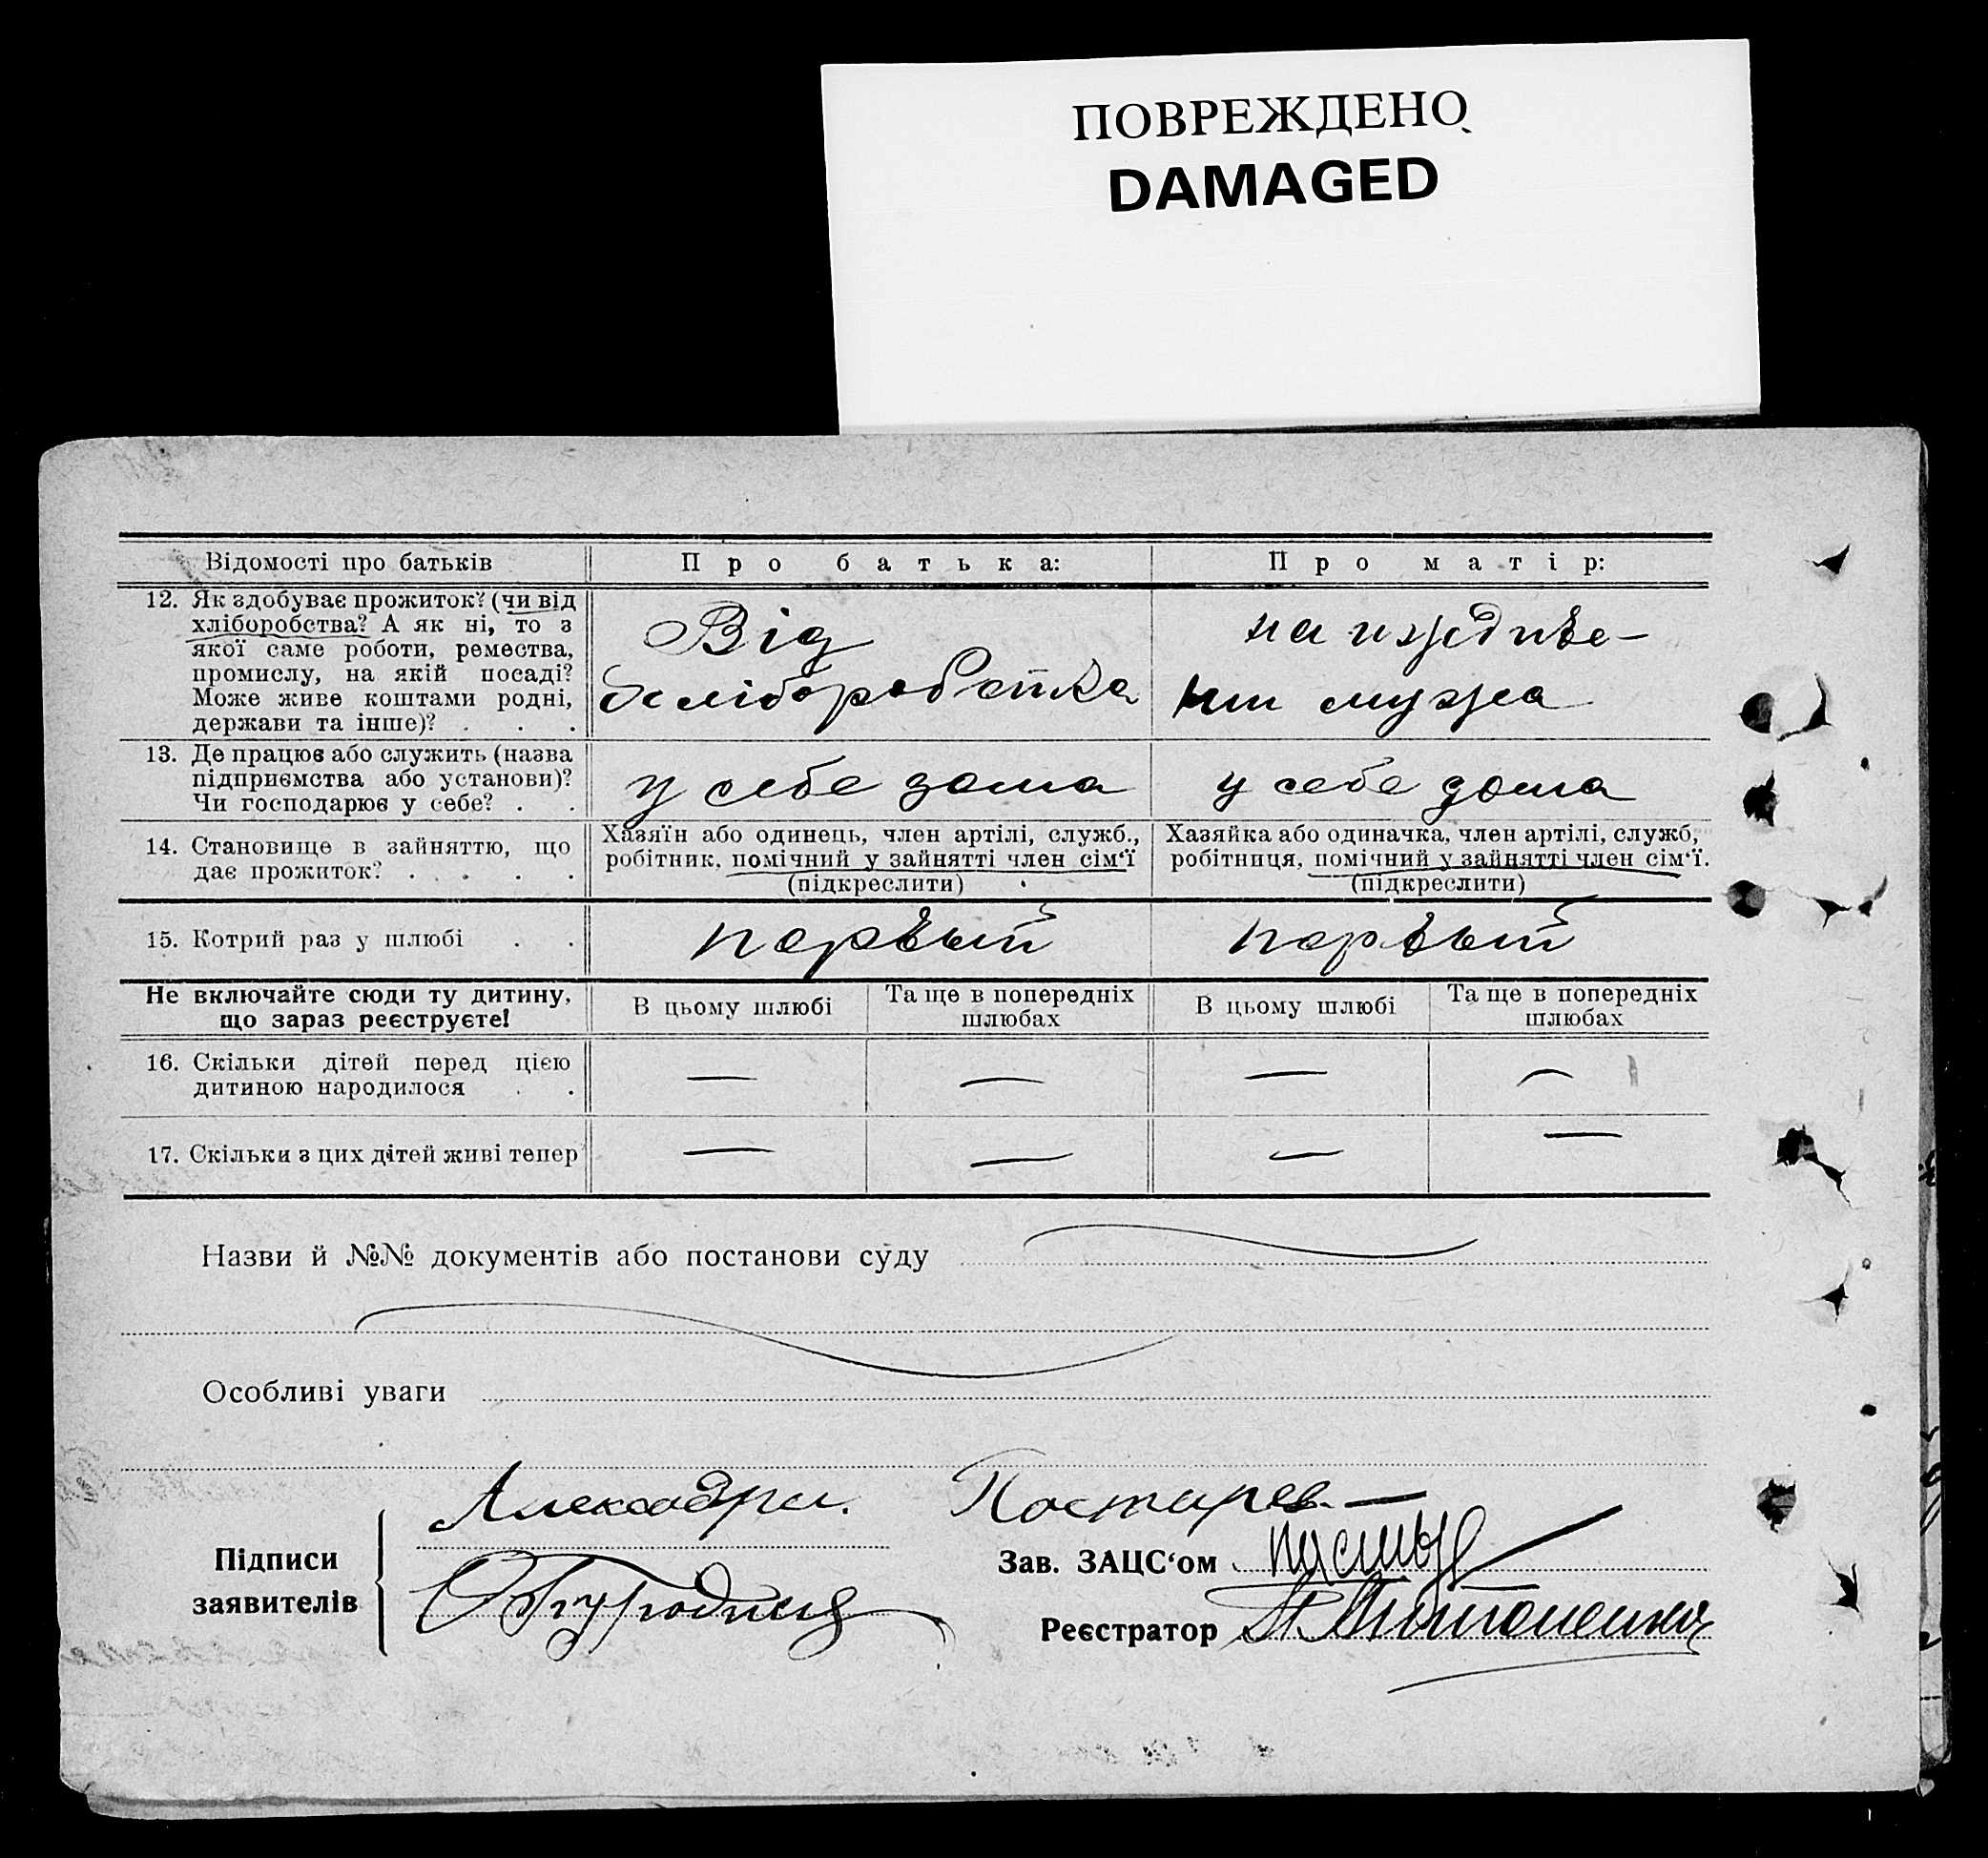 ПОВРЕЖДЕНО
DAMAGED
Відомості про батьків
Про батька:
Про матір:
12. Як здобуває прожиток? (чи від
хліборобства? А як ні, то з
якої саме роботи, ремества,
промислу, на якій посаді?
Може живе коштами родні,
держави та інше)? . . .
Від
хліборобства
на иждиве-
нии мужа
13. Де працює або служить (назва
підприємства або установи)?
Чи господарює у себе? . .
у себе дома
у себе дома
14. Становище в зайняттю, що
дає прожиток? . . . .
Хазяїн або одинець, член артілі, служб.,
робітник, помічний у зайнятті член сім‘ї
(підкреслити)
Хазяйка або одиначка, член артілі, служб,
робітниця, помічний у зайнятті член сім‘ї.
(підкреслити)
15. Котрий раз у шлюбі . .
первый
первый
Не включайте сюди ту дитину,
що зараз реєструєте!
В цьому шлюбі
Та ще в попередніх
шлюбах
В цьому шлюбі
Та ще в попередніх
шлюбах
16. Скільки дітей перед цією
дитиною народилося . .
— — — —
17. Скільки з цих дітей живі тепер
— — — —
Назви й №№ документів або постанови суду
Особливі уваги
Підписи
заявителів
Зав. ЗАЦС‘ом
Реєстратор